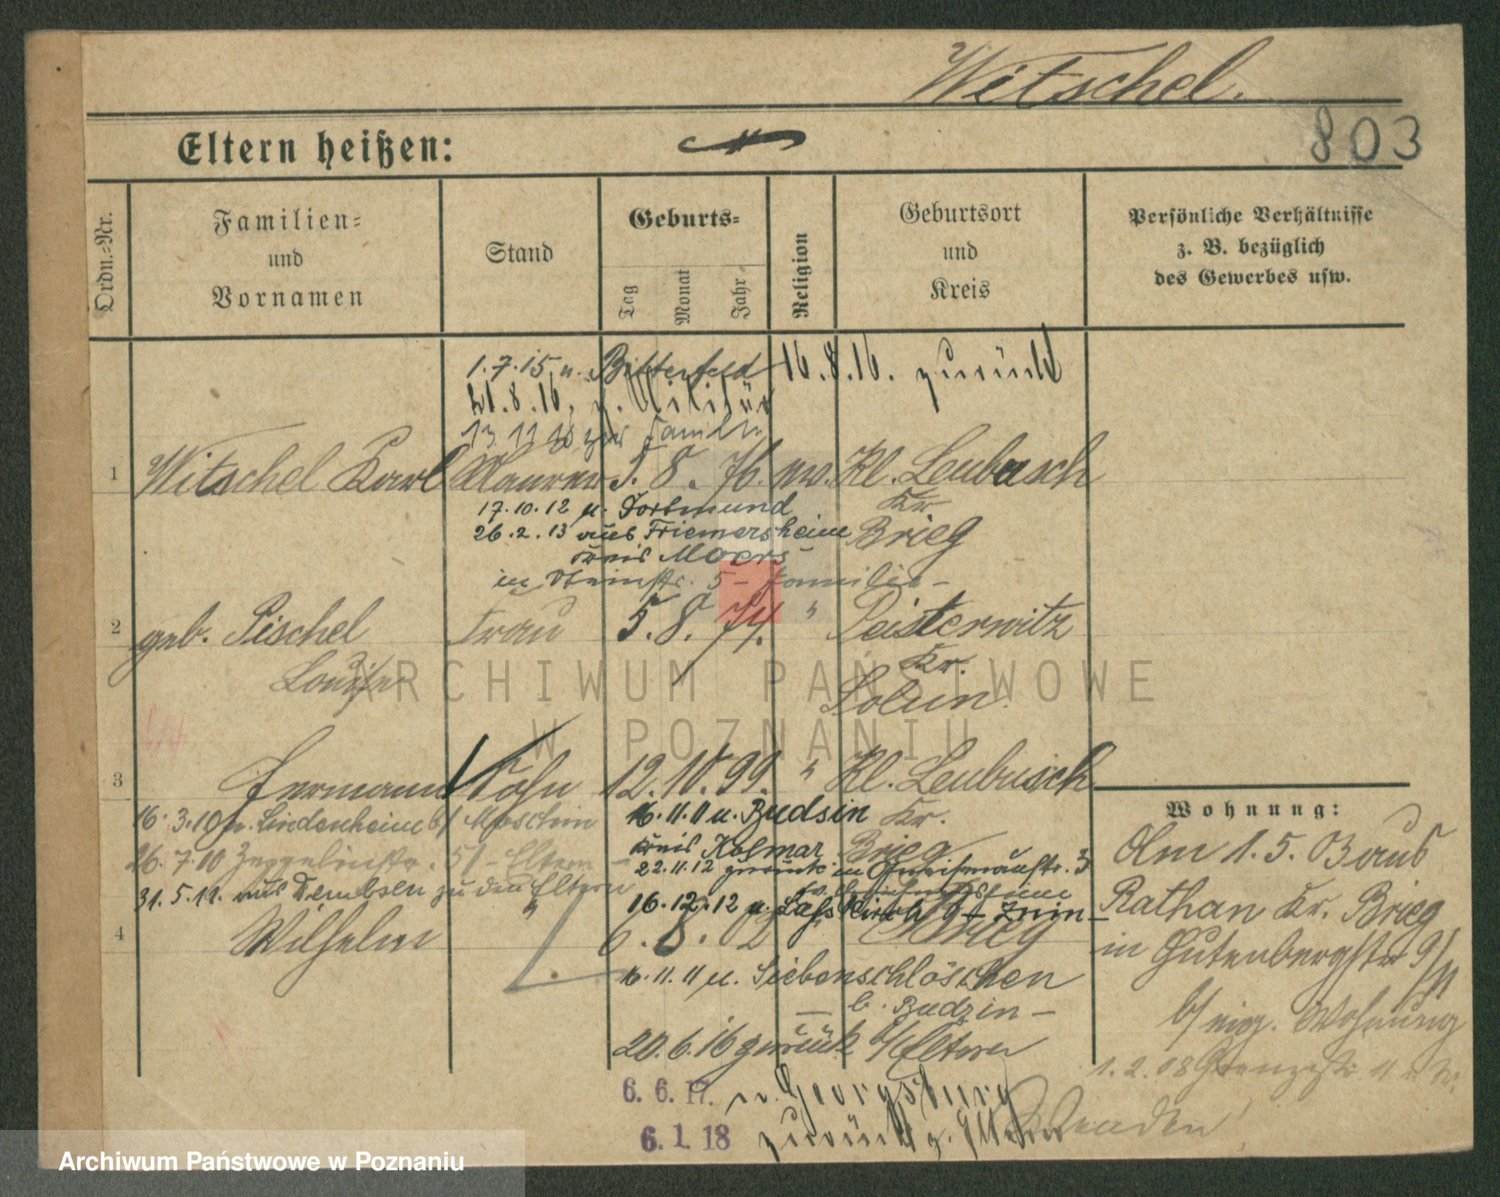 Witschel.
803
Eltern heißen:
Ordn.-Nr.
Familien-
und
Vornamen
Stand
Geburts-
Tag
Monat
Jahr
Religion
Geburtsort
und
Kreis
Persönliche Verhältnisse
z. B. bezüglich
des Gewerbes usw.
1.7.15 n. Bitterfeld 16.8.16. zurück
21.8.16. z. Militär
13 11 18 zur Familie
1 Witschel Karl Maurer 5. 8. 76. ev. Kl. Leubusch
Kr
17.10.12 n. Dortmund
Brieg
26.2.13 aus Friemersheim
Kreis Moers
in 5 - Familie -
2 geb. Pischel Frau 5. 8. 74. " Peisterwitz
Louise
Kr.
3 Hermann Sohn 12. 10. 99. " Kl. Leubusch
Kr.
Brieg
16.3.10 n. b/
26.7.10 Zeppelinstr. - Eltern -
31.5.11. aus Dembsen zu den Eltern
16.11.11 n. Budsin
Kreis Kolmar
22.11.12 zurück in
16.12.12 n.
4 Wilhelm " 6. 8. 02 Brieg
16.11.11 n. Siebenschlösschen
- b. Budzin -
20.6.16 zurück b/Eltern
6. 6. 17. n. Georgsburg
6. 1. 18 zurück z. Eltern
Wohnung:
Am 1.5.03 aus
Rathau Kr. Brieg
in Gutenbergstr 9/II
b/ eig. Wohnung
1.2.08
wenden!
ARCHIWUM PAŃSTWOWE
W POZNANIU
Archiwum Państwowe w Poznaniu